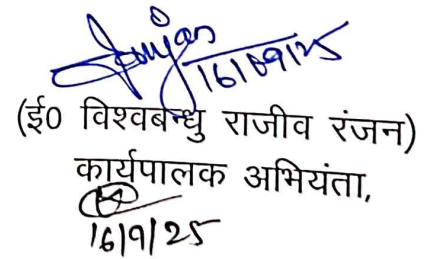 16/09/25
(ई0 विश्वबन्धु राजीव रंजन)
कार्यपालक अभियंता,
16/9/25